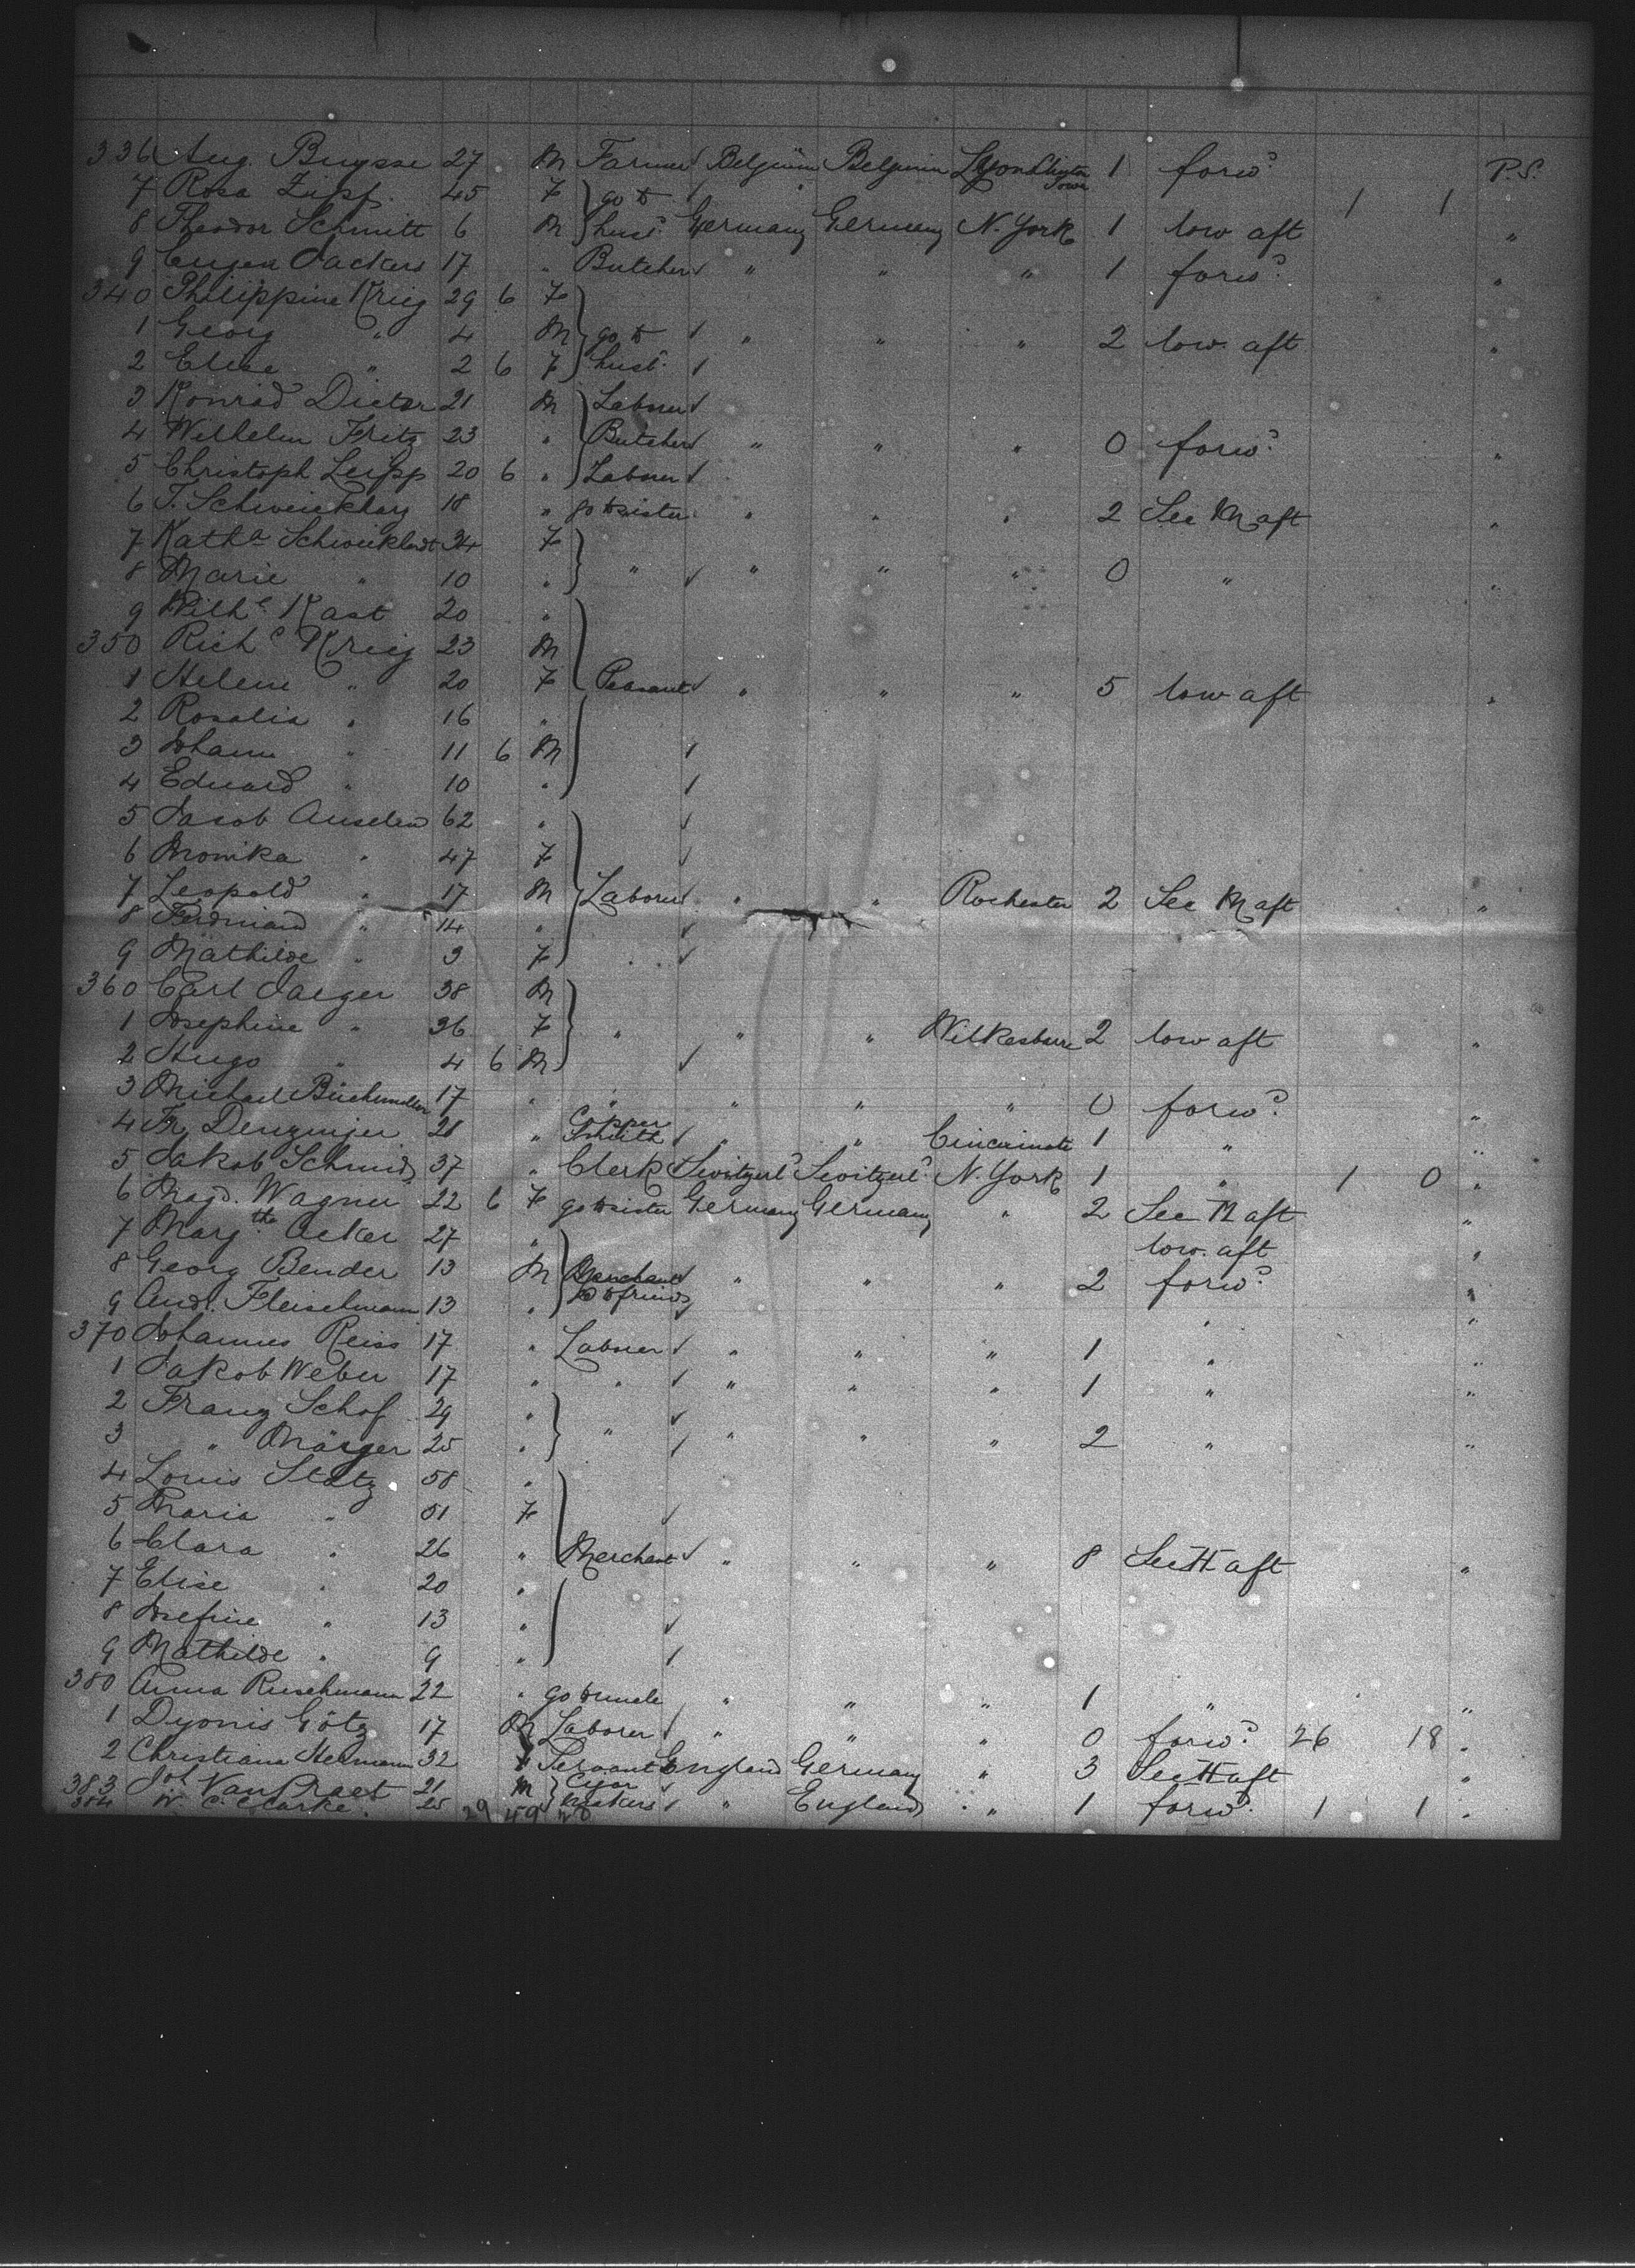 336 Aug. Buysse 27 M Farmer Belgium Belgium 1 forwd P.S.
7 Rosa Zipf. 45 F go to " 1 1
8 Theodor Schmitt 6 M husb. Germany Germany N. York 1 low aft "
9 Eugen Jackers 17 " Butcher " " " 1 forwd "
340 Philippine Krieg 29 6 F
1 Georg " 4 M go to " " " 2 low. aft "
2 Elise " 2 6 F husb.
3 Konrad Dieter 21 M Laborer
4 Wilhelm Fritz 23 " Butcher " " " 0 forwd "
5 Christoph Leipp 20 6 " Laborer
6 18 " go to sister " " " 2 See M aft "
7 Katha Schweickhardt 34 F
8 Marie " 10 " " " " " 0 " "
9 Wilhe Kast 20 "
350 Richd Krieg 23 M
1 Helene " 20 F Peasant " " " 5 low aft "
2 Rosalia " 16 "
3 Johann " 11 6 M
4 Eduard " 10 "
5 Jacob Anselm 62 "
6 Monika " 47 F
7 Leopold " 17 M Laborer " " Rochester 2 See M aft "
8 Ferdinand " 14 "
9 Mathilde " 9 F
360 Carl Jaeger 38 M
1 Josephine " 36 F " " " Wilkesbarre 2 low aft "
2 Hugo " 4 6 M
3 Michael 17 " " " " " 0 forwd "
4 Fr. Denzinger 21 " Copper Smith " " Cincinnate 1 " "
5 Jakob Schmid 37 " Clerk Switzerld Switzerld N. York 1 " 1 0 "
6 Magd. Wagner 22 6 F go to sister Germany Germany " 2 See M aft "
7 Margthe Acker 27 " low. aft "
8 Georg Bender 13 M Merchant " " " 2 forwd "
9 Andr. Fleischmann 13 " go to friends " "
370 Johannes Reiss 17 " Laborer " " " 1 " "
1 Jakob Weber 17 " " " " " 1 " "
2 Franz Schof 29 "
3 " Mäsger 25 " " " " " 2 " "
4 Louis Statz 58 "
5 Maria " 51 F
6 Clara " 26 " Merchant " " " 8 See H aft "
7 Elise " 20 "
8 Josefine " 13 "
9 Mathilde " 9 "
380 Anna Ruschmann 22 " go to uncle " " " 1 " "
1 Dyonis Götz 17 M Laborer " " " 0 forwd 26 18 "
2 Christiana Hermann 32 F Servant England Germany " 3 See H aft "
383 Jos Van Praet 21 M Cigar
384 W. C. Clarke. 25 " Makers " England " 1 forwd 1 1 "
29 49 28